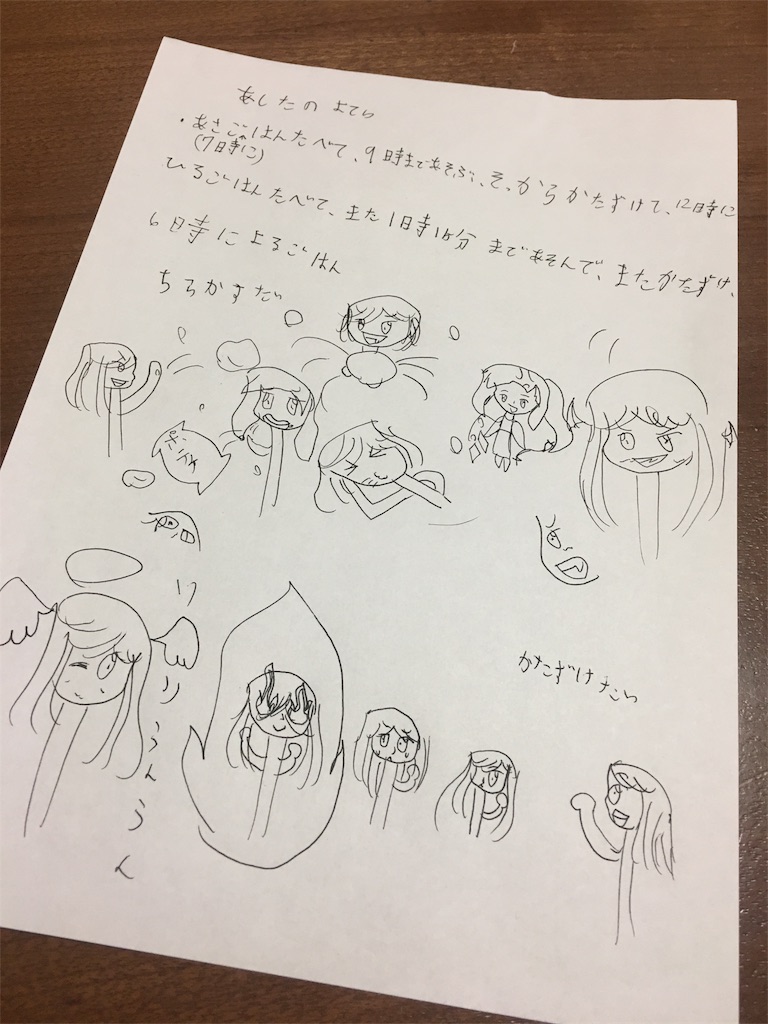 あしたの よてい
・あさごはんたべて、9時まであそぶ、そ、からかたずけて、12時に
(7時に)
ひるごはんたべて、また1時18分 まであそんで、またかたずけ、
6時によるごはん
ちらかすたい
かたずけたい
うんうん